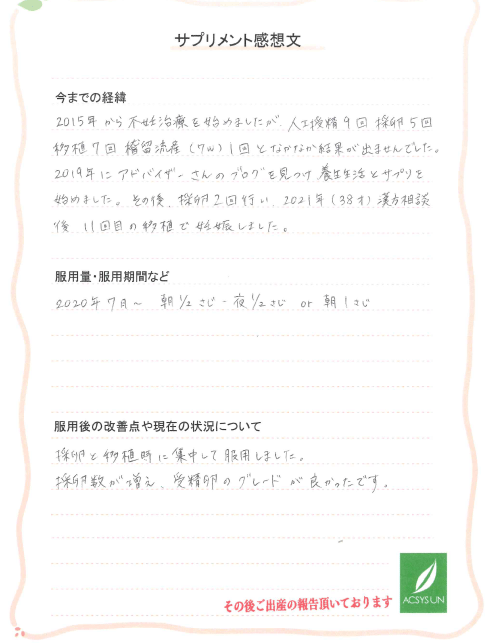 サプリメント感想文
今までの経緯
2015年から不妊治療を始めましたが、人工授精9回 採卵5回
移植7回 稽留流産(7w)1回となかなか結果が出ませんでした。
2019年にアドバイザーさんのブログを見つけ養生生活とサプリを
始めました。その後、採卵2回行い、2021年(38才)漢方相談
後、11回目の移植で妊娠しました。
服用量・服用期間など
2020年7月〜 朝1/2さじ-夜1/2さじ or 朝1さじ
服用後の改善点や現在の状況について
採卵と移植時に集中して服用しました。
採卵数が増え、受精卵のグレードが良かったです。
その後ご出産の報告頂いております
ACSYSUN